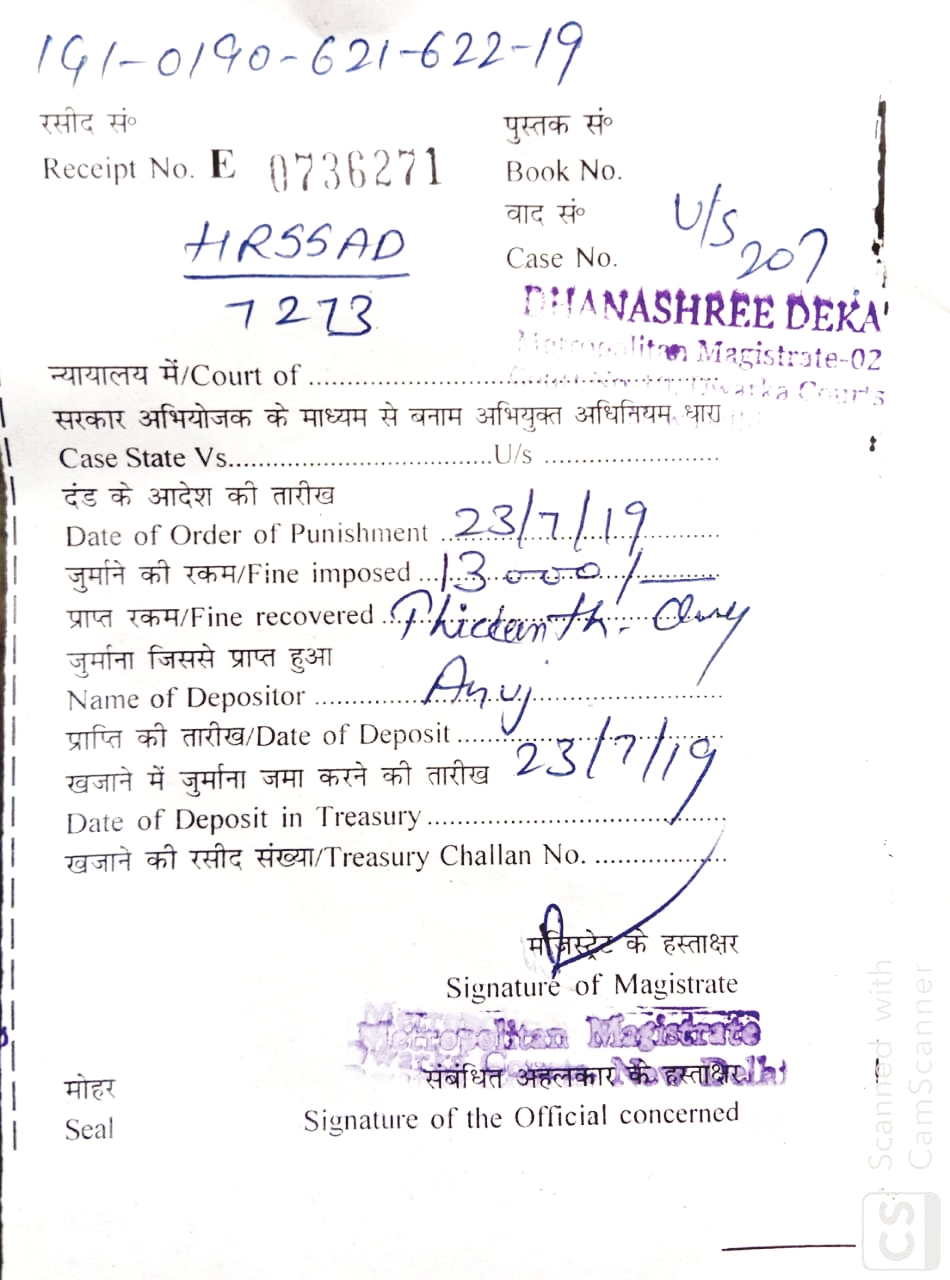 191-0190-621-622-19
रसीद सं॰
Receipt No. E 0736271
पुस्तक सं॰
Book No.
वाद सं॰
Case No. U/S 207
HRSSAD
7273
DHANASHREE DEKA
Metropolitan Magistrate-02
Dwarka Courts
न्यायालय में/Court of ..............................
सरकार अभियोजक के माध्यम से बनाम अभियुक्त अधिनियम धारा
Case State Vs....................................U/s ........................
दंड के आदेश की तारीख
Date of Order of Punishment 23/7/19
जुर्माने की रकम/Fine imposed ...13000/-
प्राप्त रकम/Fine recovered ...
जुर्माना जिससे प्राप्त हुआ
Name of Depositor ............ Anuj
प्राप्ति की तारीख/Date of Deposit ............
23/7/19
खजाने में जुर्माना जमा करने की तारीख
Date of Deposit in Treasury ..............................
खजाने की रसीद संख्या/Treasury Challan No. ..................
मजिस्ट्रेट के हस्ताक्षर
Signature of Magistrate
Metropolitan Magistrate
संबंधित अहलकार के हस्ताक्षर
Signature of the Official concerned
मोहर
Seal
Scanned with
CamScanner
CS